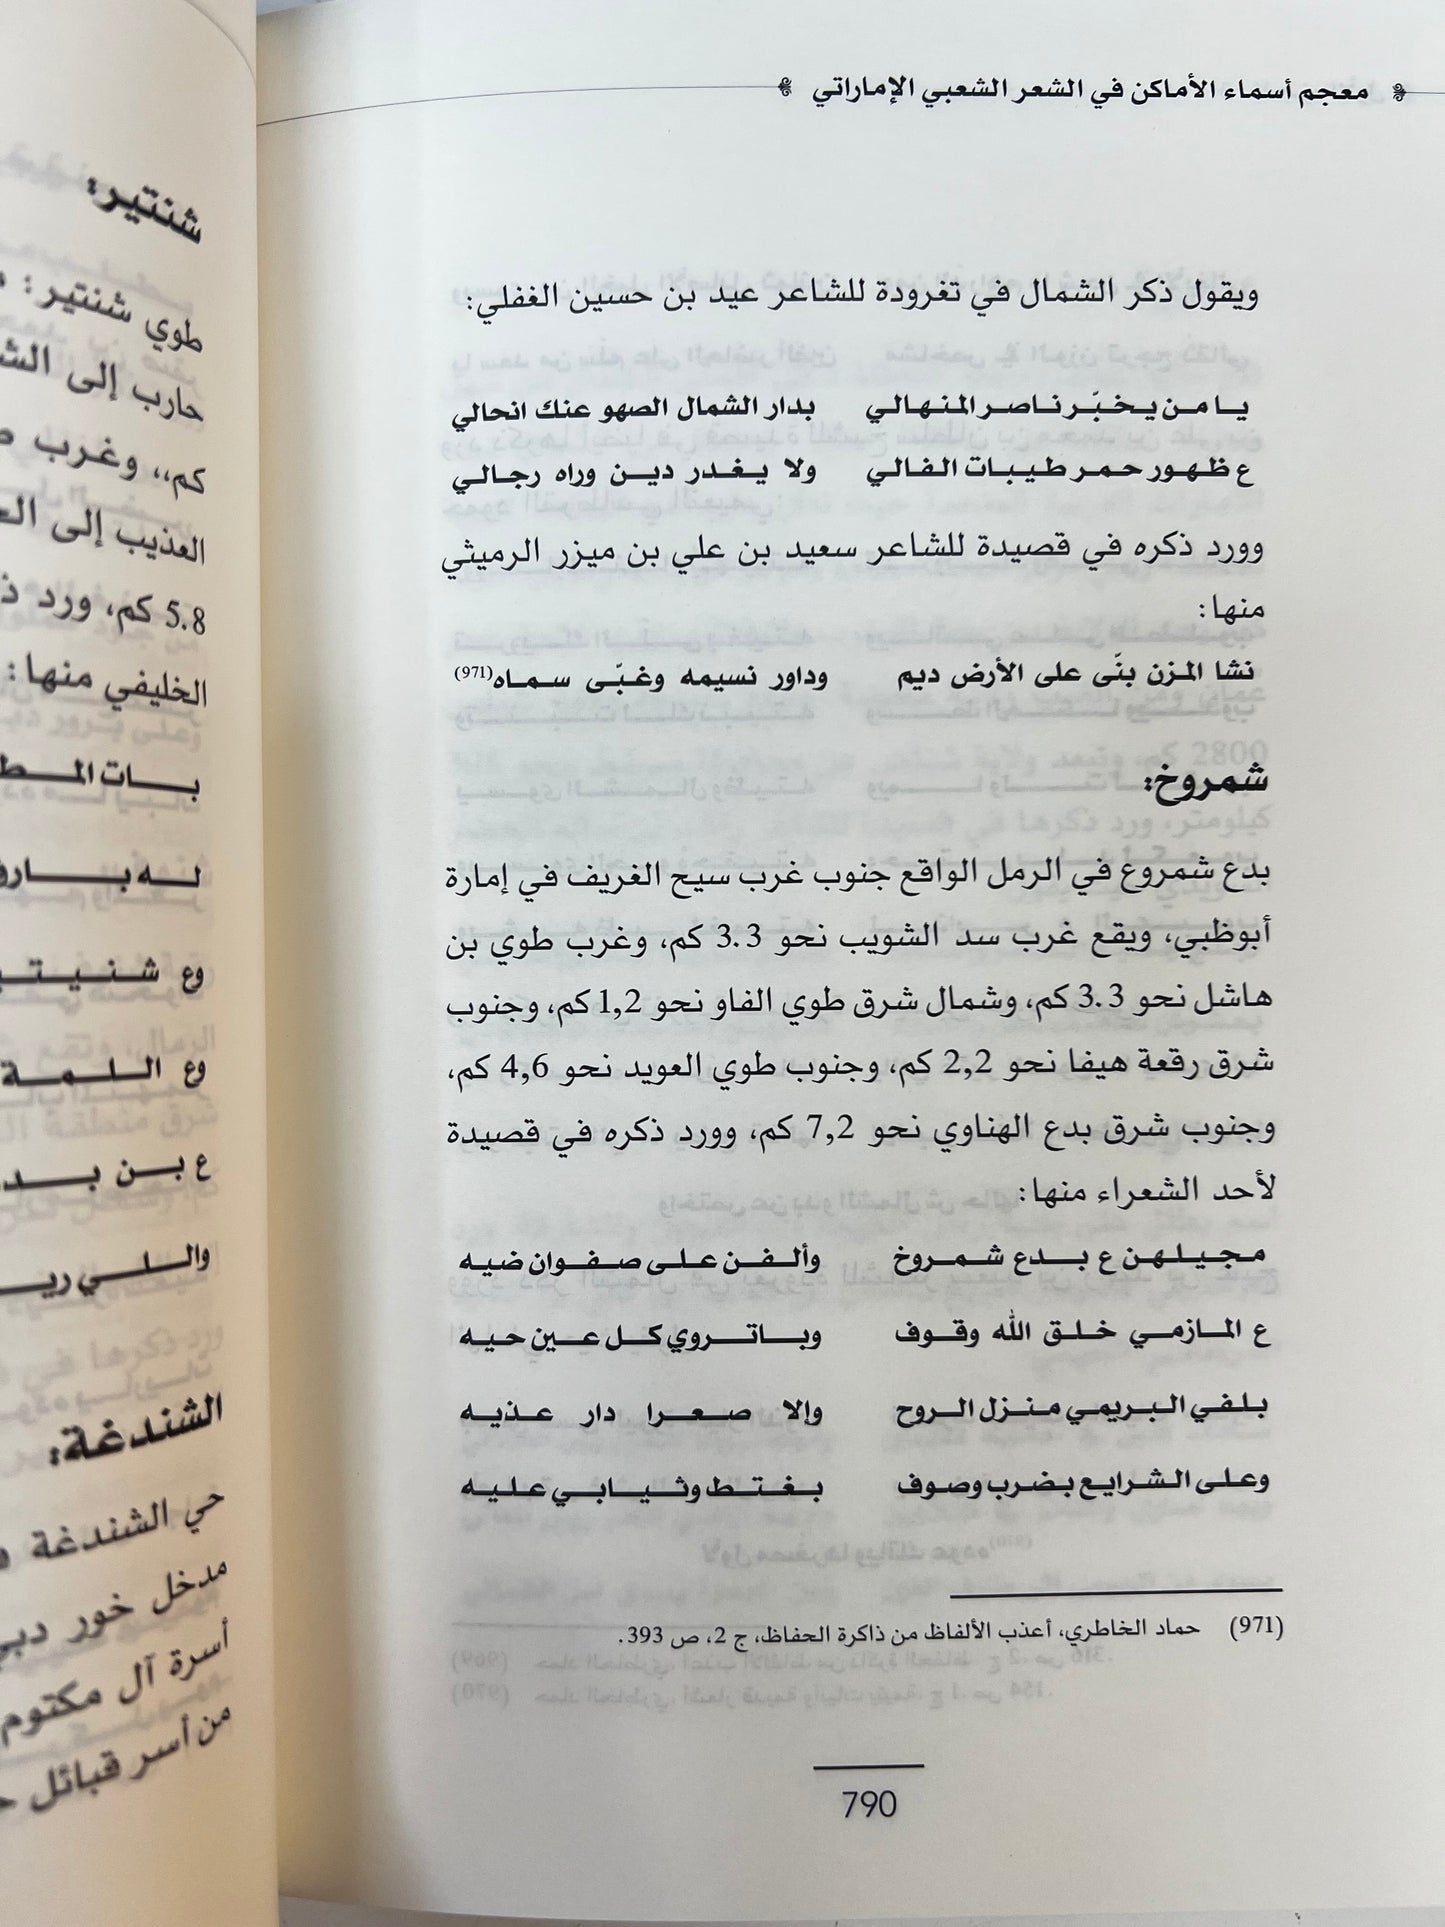 معجم أسماء الأماكن في الشعر الشعبي الإماراتي
ويقول ذكر الشمال في تغرودة للشاعر عيد بن حسين الغفلي:
يا من يخبّر ناصر المنهالي بدار الشمال الصهو عنك انحالي
ع ظهور حمر طيبات الفالي ولا يغدر دين وراه رجالي
وورد ذكره في قصيدة للشاعر سعيد بن علي بن ميزر الرميثي
منها:
نشا المزن بنّى على الأرض ديم وداور نسيمه وغبّى سماه(971)
شمروخ:
بدع شمروع في الرمل الواقع جنوب غرب سيح الغريف في إمارة
أبوظبي، ويقع غرب سد الشويب نحو 3.3 كم، وغرب طوي بن
هاشل نحو 3.3 كم، وشمال شرق طوي الفاو نحو 1,2 كم، وجنوب
شرق رقعة هيفا نحو 2,2 كم، وجنوب طوي العويد نحو 4,6 كم،
وجنوب شرق بدع الهناوي نحو 7,2 كم، وورد ذكره في قصيدة
لأحد الشعراء منها:
مجيلهن ع بدع شمروخ وألفن على صفوان ضيه
ع المازمي خلق الله وقوف وباتروي كل عين حيه
بلفي البريمي منزل الروح وإلا صعرا دار عذيه
وعلى الشرايع بضرب وصوف بغتط وثيابي عليه
(971) حماد الخاطري، أعذب الألفاظ من ذاكرة الحفاظ، ج 2، ص 393.
790
شنتير:
طوي شنتير:
حارب إلى
كم،، وغرب
العذيب إلى
5.8 كم، ورد
الخليفي منها:
بات
له
وع
وع اللمة
ع بن
واللي
الشندغة:
حي الشندغة
مدخل خور
أسرة آل مكتوم
من أسر قبائل